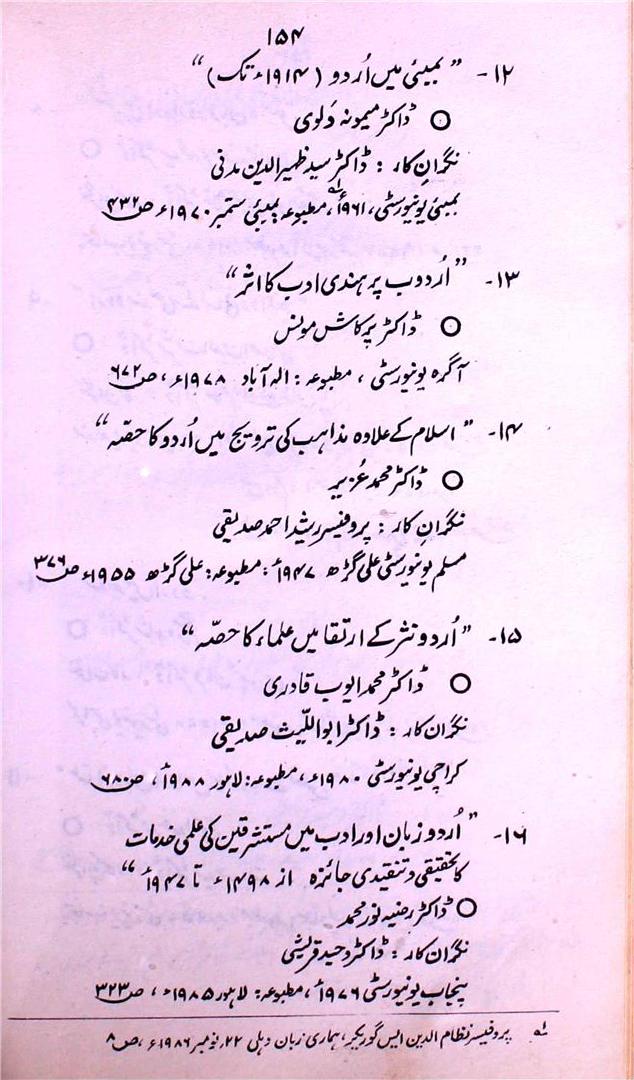 ۱۵۴
۱۲- " بمبئی میں اُردو ( ۱۹۱۴ء تک ) "
○ ڈاکٹر میمونہ دَلوی
نگرانِ کار : ڈاکٹر سید ظہیر الدین مدنی
بمبئی یونیورسٹی، ۱۹۶۱ء؎۱، مطبوعہ بمبئی ستمبر ۱۹۷۰ء ص ۴۳۲
۱۳- " اُردوب پر ہندی ادب کا اثر "
○ ڈاکٹر پرکاش مونس
آگرہ یونیورسٹی ، مطبوعہ : الہ آباد ۱۹۷۸ء، ص ۶۷۲
۱۴- " اسلام کے علاوہ مذاہب کی ترویج میں اُردو کا حصّہ "
○ ڈاکٹر محمد عُزیر
نگرانِ کار : پروفیسر رشید احمد صدیقی
مسلم یونیورسٹی علی گڑھ ۱۹۴۷ء : مطبوعہ : علی گڑھ ۱۹۵۵ء ص ۳۷۶
۱۵- " اُردو نثر کے ارتقا میں علماء کا حصّہ "
○ ڈاکٹر محمد ایوب قادری
نگران کار : ڈاکٹر ابواللّیث صدیقی
کراچی یونیورسٹی ۱۹۸۰ء، مطبوعہ : لاہور ۱۹۸۸ء، ص ۶۸۰
۱۶- " اُردو زبان اور ادب میں مستشرقین کی علمی خدمات
کا تحقیقی و تنقیدی جائزہ از ۱۴۹۸ء تا ۱۹۴۷ء "
○ ڈاکٹر رضیہ نور محمد
نگران کار : ڈاکٹر وحید قریشی
پنجاب یونیورسٹی ۱۹۷۶ء، مطبوعہ : لاہور ۱۹۸۵ء ، ص ۳۲۳
؎۱ پروفیسر نظام الدین ایس گوریکر، ہماری زبان دہلی ۲۲، نومبر ۱۹۸۶ء، ص ۸